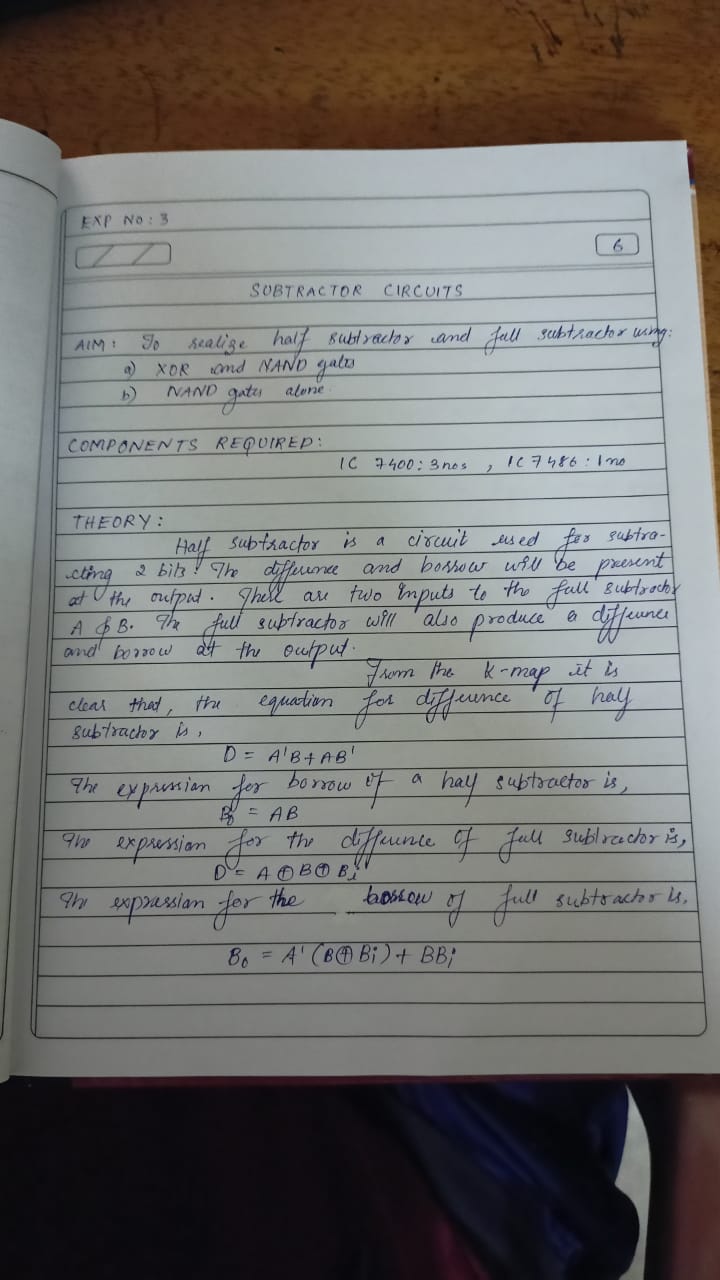 EXP NO: 3
6
SUBTRACTOR CIRCUITS
AIM: To realize half subtractor and full subtractor using:
a) XOR and NAND gates
b) NAND gates alone.
COMPONENTS REQUIRED:
IC 7400: 3nos, IC7486: 1no
THEORY:
Half subtractor is a circuit used for subtra-
cting 2 bits. The difference and borrow will be present
at the output. There are two inputs to the full subtractor
A & B. The full subtractor will also produce a difference
and borrow at the output.
From the K-map it is
clear that, the equation for difference of half
subtractor is,
D = A'B + AB'
The expression for borrow of a half subtractor is,
B₀ = AB
The expression for the difference of full subtractor is,
D = A ⊕ B ⊕ Bi
The expression for the borrow of full subtractor is,
B₀ = A' (B ⊕ Bi) + BBi